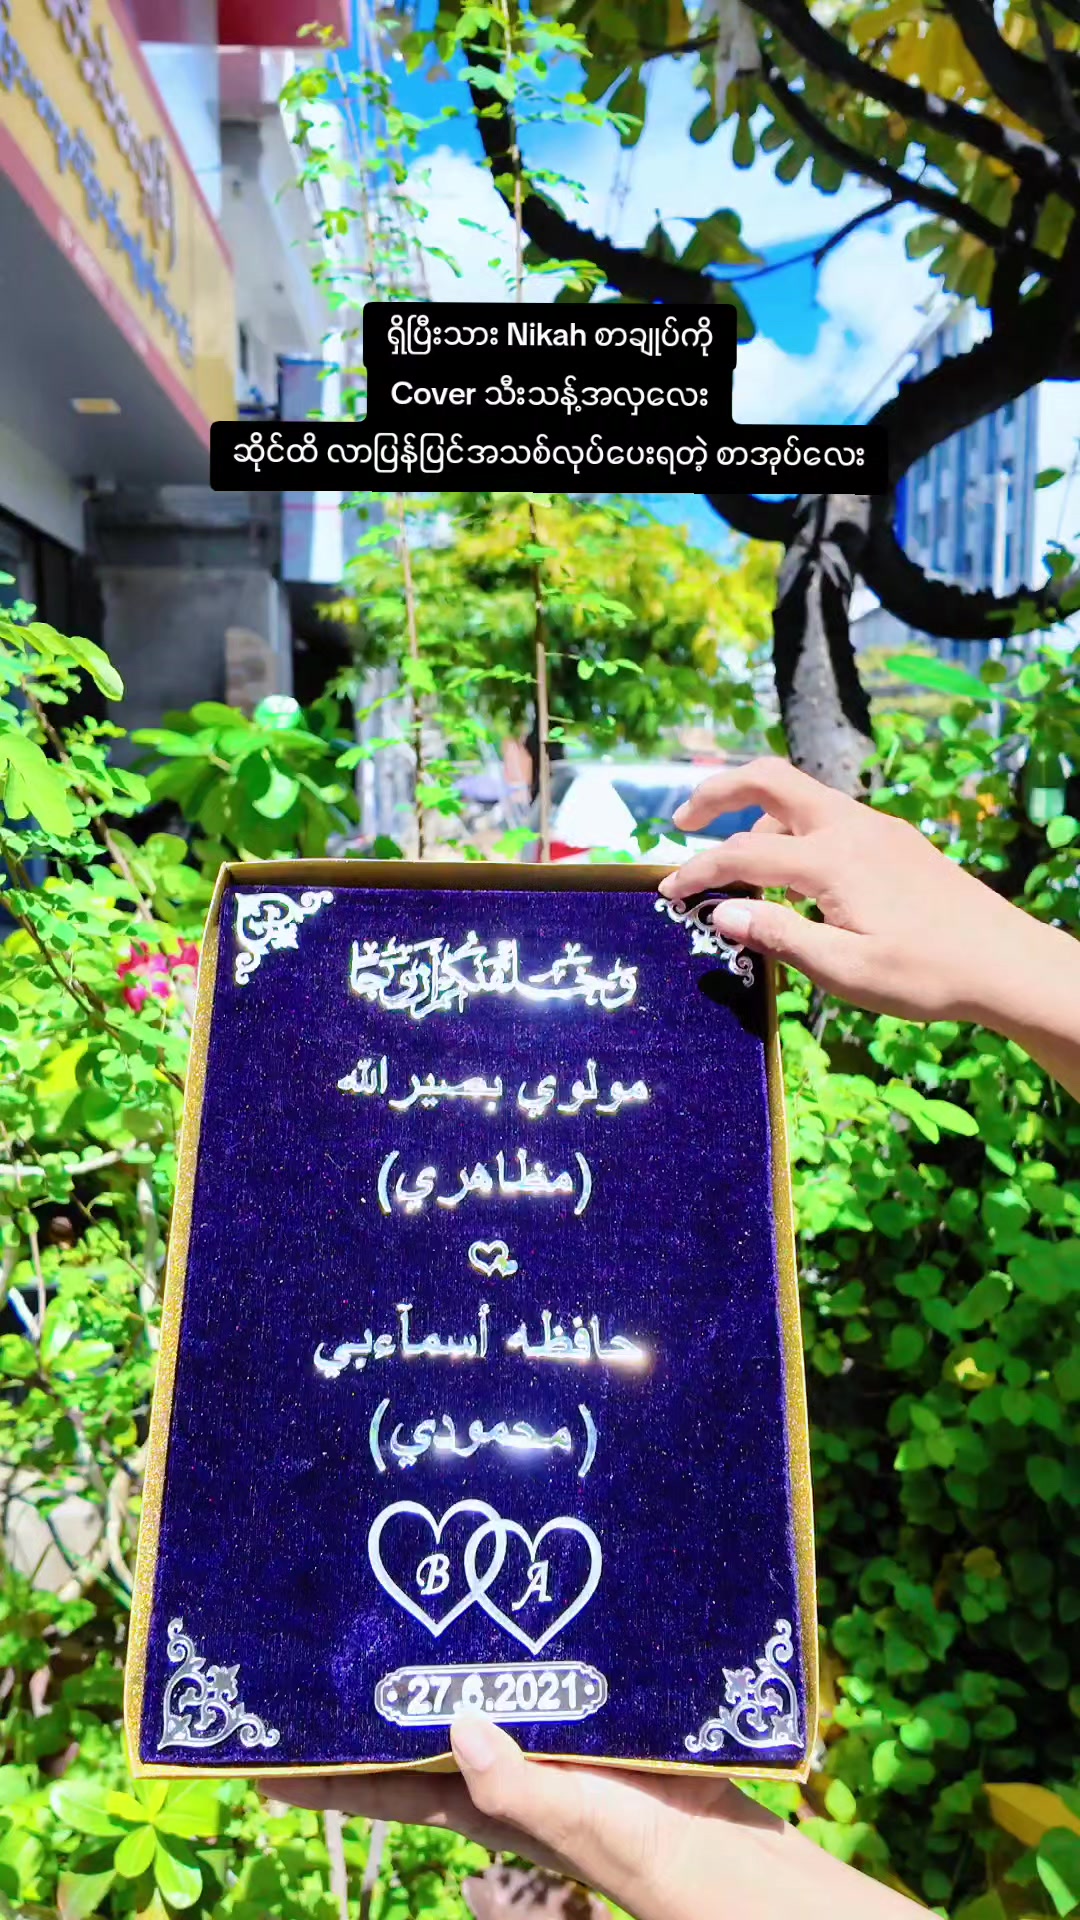 ရှိပြီးသား Nikah စာချုပ်ကို
Cover သီးသန့်အလှလေး
ဆိုင်ထိ လာပြန်ပြင်အသစ်လုပ်ပေးရတဲ့ စာအုပ်လေး
وَخَلَقْنَاكُمْ أَزْوَاجًا
مولوي بصير الله
(مظاهري)
حافظه أسمآءبي
(محمودي)
B A
27.6.2021